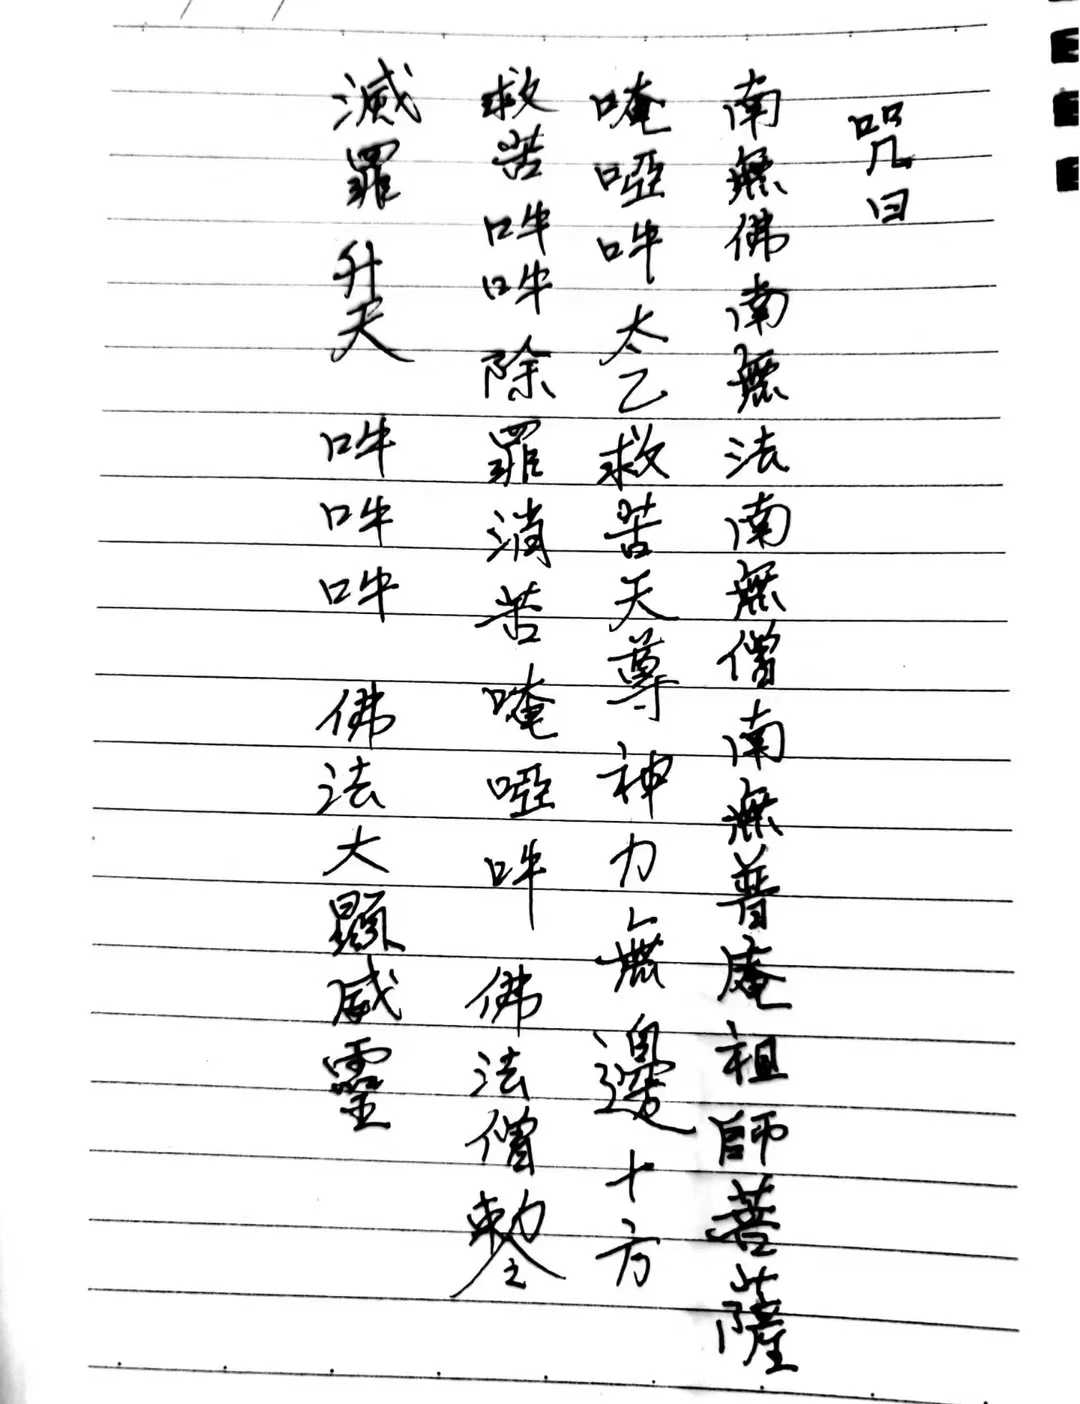 咒曰
南無佛南無法南無僧南無普庵祖師菩薩
唵啞吽太乙救苦天尊神力無邊十方
救苦吽吽除罪消苦唵啞吽佛法僧勅令
滅罪升天吽吽吽佛法大顯威靈